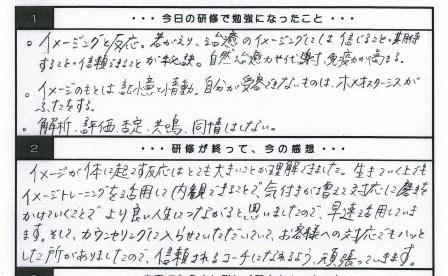 1 ・・・今日の研修で勉強になったこと・・・
。イメージングと反応。若がえり、治癒のイメージングとしては信じること・期待
すること・信頼できることが秘訣。自然治癒力や代謝、免疫力が高まる。
。イメージのもとは記憶と情動。自分が受容できないものは、ホメオスターシスが
ふたをする。
・解析、評価、否定、共鳴、同情はしない。
2 ・・・研修が終わって、今の感想・・・
イメージが体に起こす反応はとても大きいことが理解できました。生きていく上でも
イメージトレーニングを活用して内観できることで気付きが増えて対応に磨きを
かけていくことでより良い人生につながると思いましたので、早速活用していき
ます。そして、カウンセリングに入らせていただいていて、お客様への対応でもハッと
した所がありましたので、信頼されるコーチになれるよう、頑張っていきます。